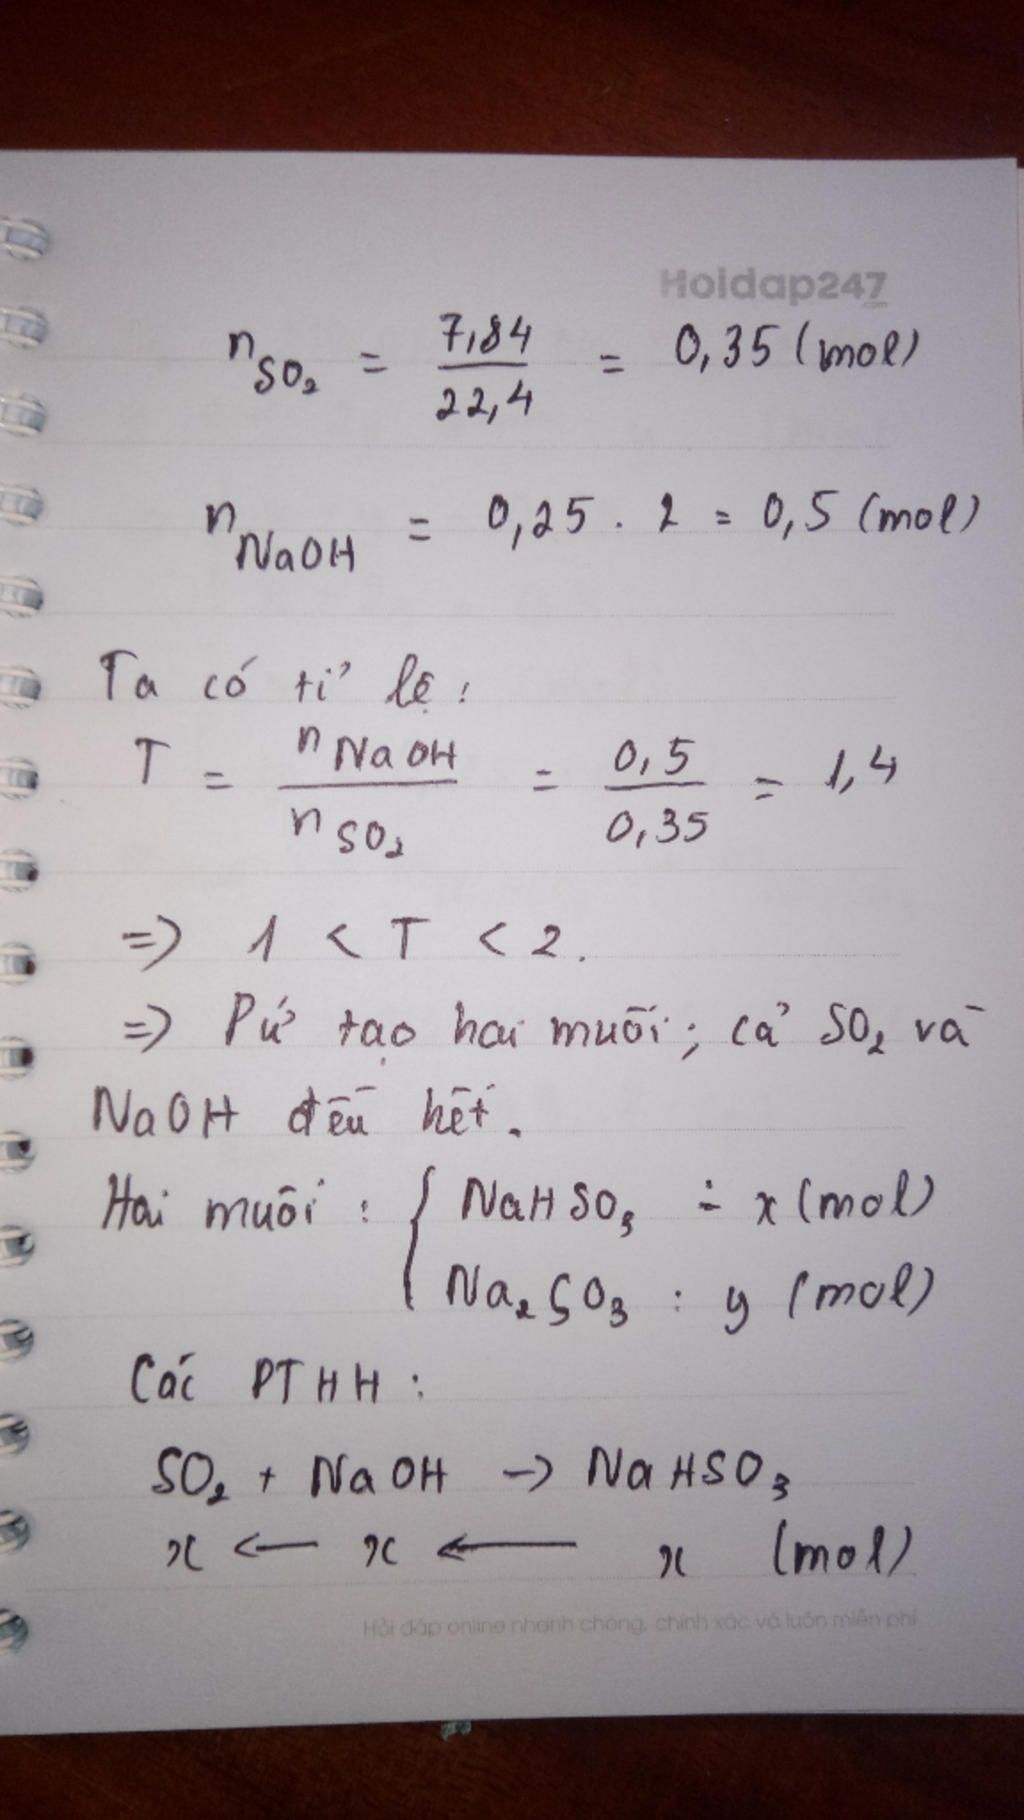 Hoidap247
.com
n SO₂ = 7,84 / 22,4 = 0,35 (mol)
n NaOH = 0,25 . 2 = 0,5 (mol)
Ta có tỉ lệ :
T = n NaOH / n SO₂ = 0,5 / 0,35 = 1,4
=> 1 < T < 2.
=> Pứ tạo hai muối ; cả SO₂ và
NaOH đều hết.
Hai muối : { NaHSO₃ : x (mol)
Na₂SO₃ : y (mol)
Các PTHH :
SO₂ + NaOH -> NaHSO₃
x <— x <— x (mol)
Hỏi đáp online nhanh chóng, chính xác và luôn miễn phí